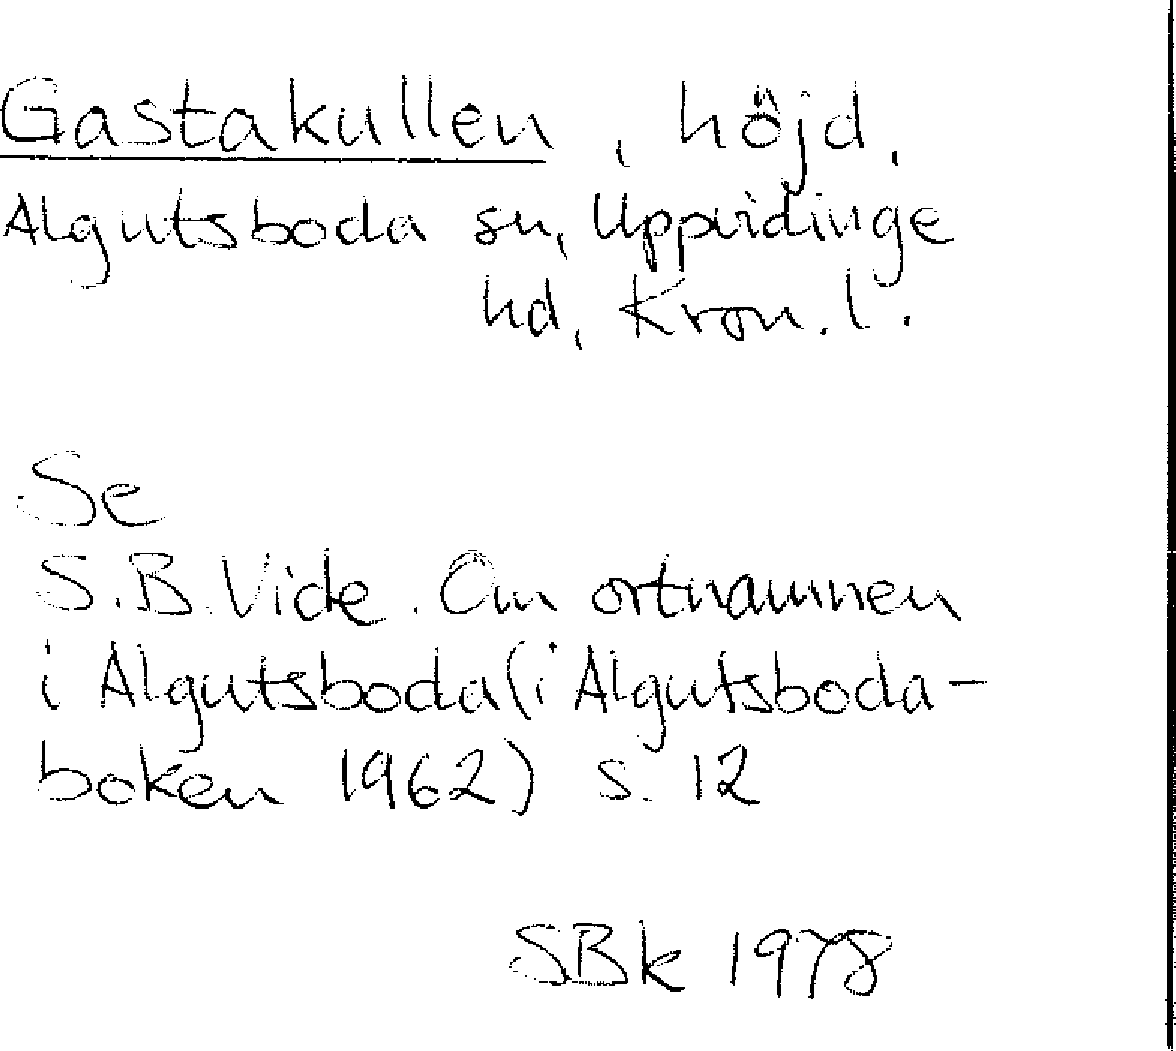 Gastakullen, höjd,
Algutsboda sn, Uppvidinge
hd, Kron. l.
Se
S.B. Vide. Om ortnamnen
i Algutsboda (i Algutsboda-
boken 1962) s. 12
SBk 1978